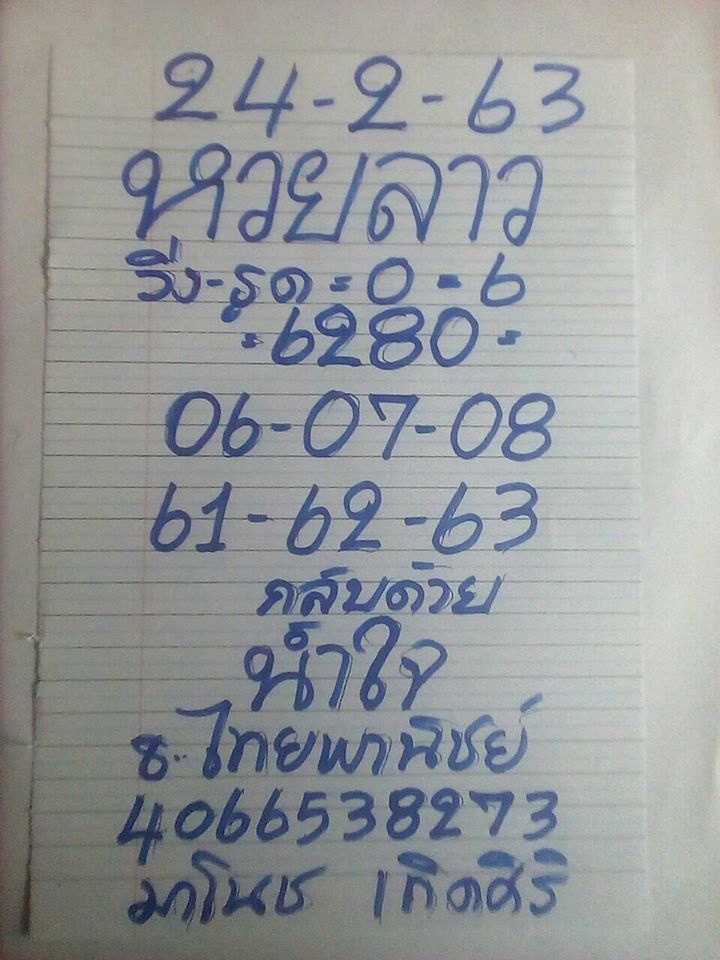 24-2-63
หวยลาว
วิ่ง-รูด=0=6
=6280=
06-07-08
61-62-63
กลับด้วย
น้ำใจ
ธ.ไทยพานิชย์
4066538273
มาโนช เกิดศิริ